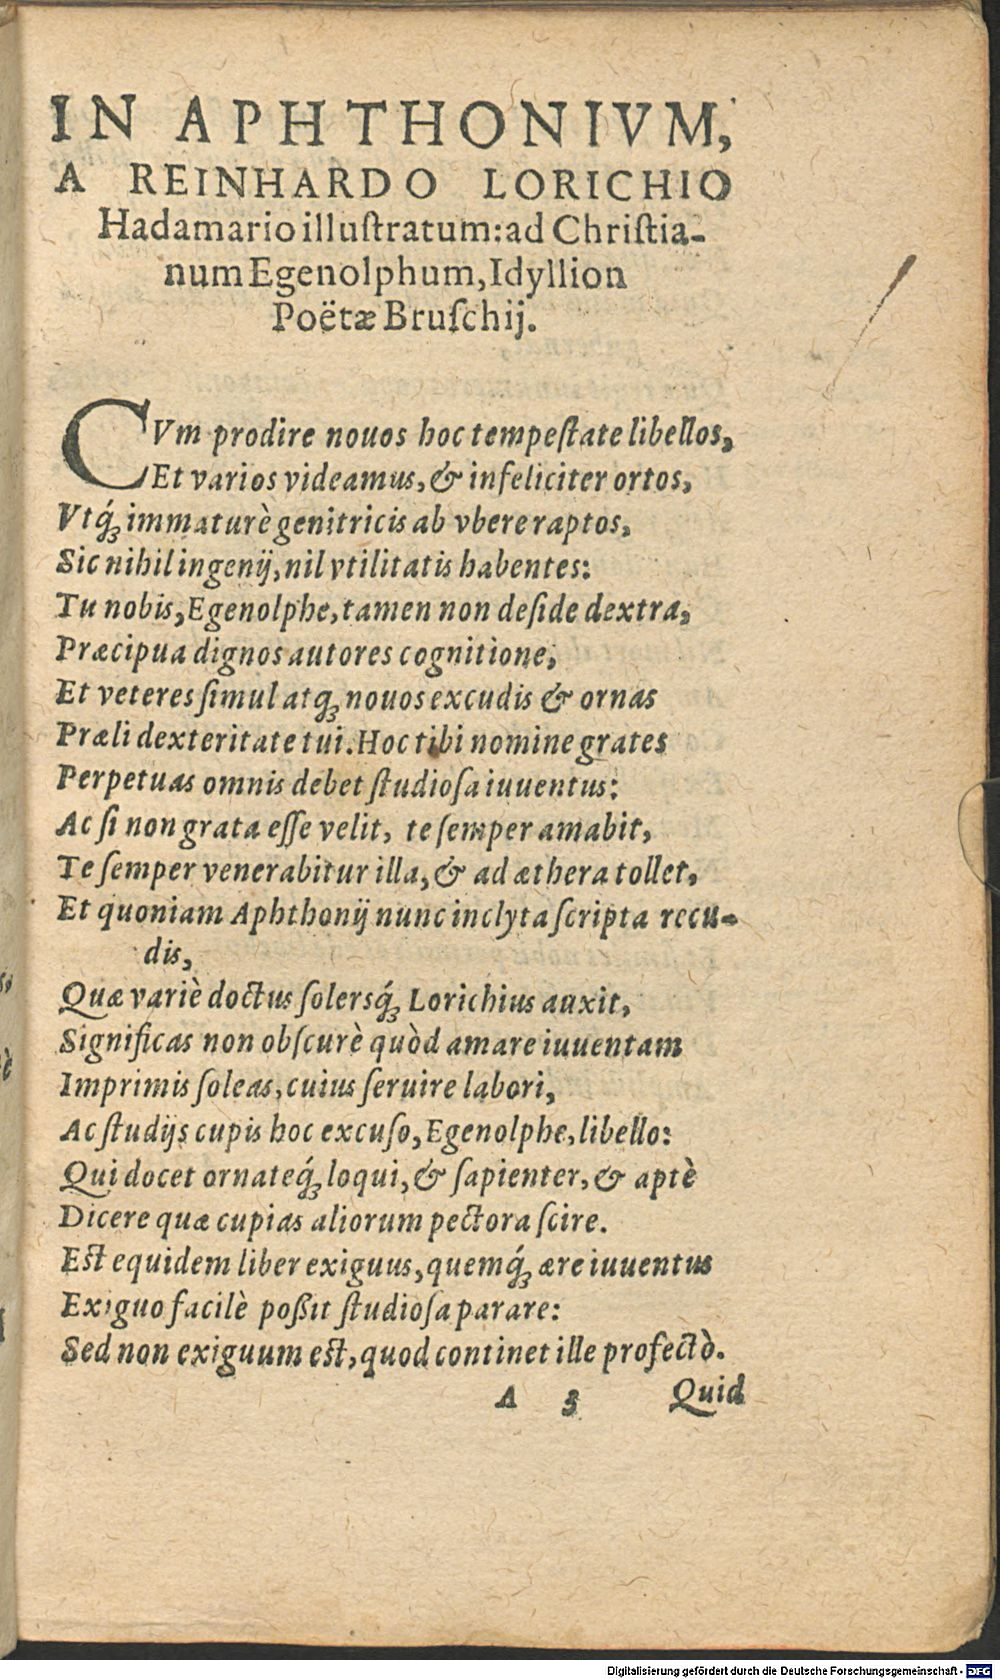 IN APHTHONIVM,
A REINHARDO LORICHIO
Hadamario illuſtratum: ad Chriſtia-
num Egenolphum, Idyllion
Poëtæ Bruſchij.
CVm prodire nouos hoc tempeſtate libellos,
Et varios videamus, & infeliciter ortos,
Vtq́; immaturè genitricis ab vbere raptos,
Sic nihil ingenij, nil vtilitatis habentes:
Tu nobis, Egenolphe, tamen non deſide dextra,
Præcipua dignos autores cognitione,
Et veteres ſimul atq; nouos excudis & ornas
Præli dexteritate tui. Hoc tibi nomine grates
Perpetuas omnis debet ſtudioſa iuuentus:
Ac ſi non grata eſſe velit, te ſemper amabit,
Te ſemper venerabitur illa, & ad æthera tollet,
Et quoniam Aphthonij nunc inclyta ſcripta recu-
dis,
Quæ variè doctus ſolersq́; Lorichius auxit,
Significas non obſcurè quòd amare iuuentam
Imprimis ſoleas, cuius ſeruire labori,
Ac ſtudijs cupis hoc excuſo, Egenolphe, libello:
Qui docet ornateq́; loqui, & ſapienter, & aptè
Dicere quæ cupias aliorum pectora ſcire.
Eſt equidem liber exiguus, quemq́; ære iuuentus
Exiguo facilè poßit ſtudioſa parare:
Sed non exiguum eſt, quod continet ille profectò.
A 3 Quid
Digitalisierung gefördert durch die Deutsche Forschungsgemeinschaft - DFG